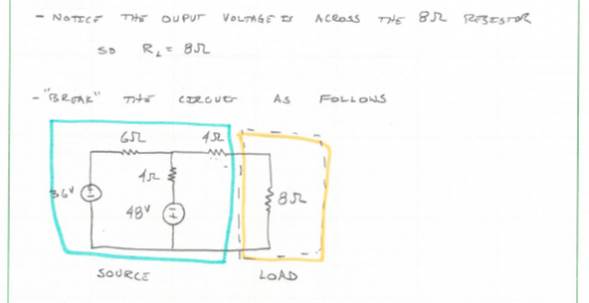 - NOTICE THE OUPUT VOLTAGE IS ACROSS THE 8Ω RESISTOR
SO R_L = 8Ω
- "BREAK" THE CIRCUIT AS FOLLOWS
6Ω 4Ω
4Ω
36V 8Ω
48V
SOURCE LOAD